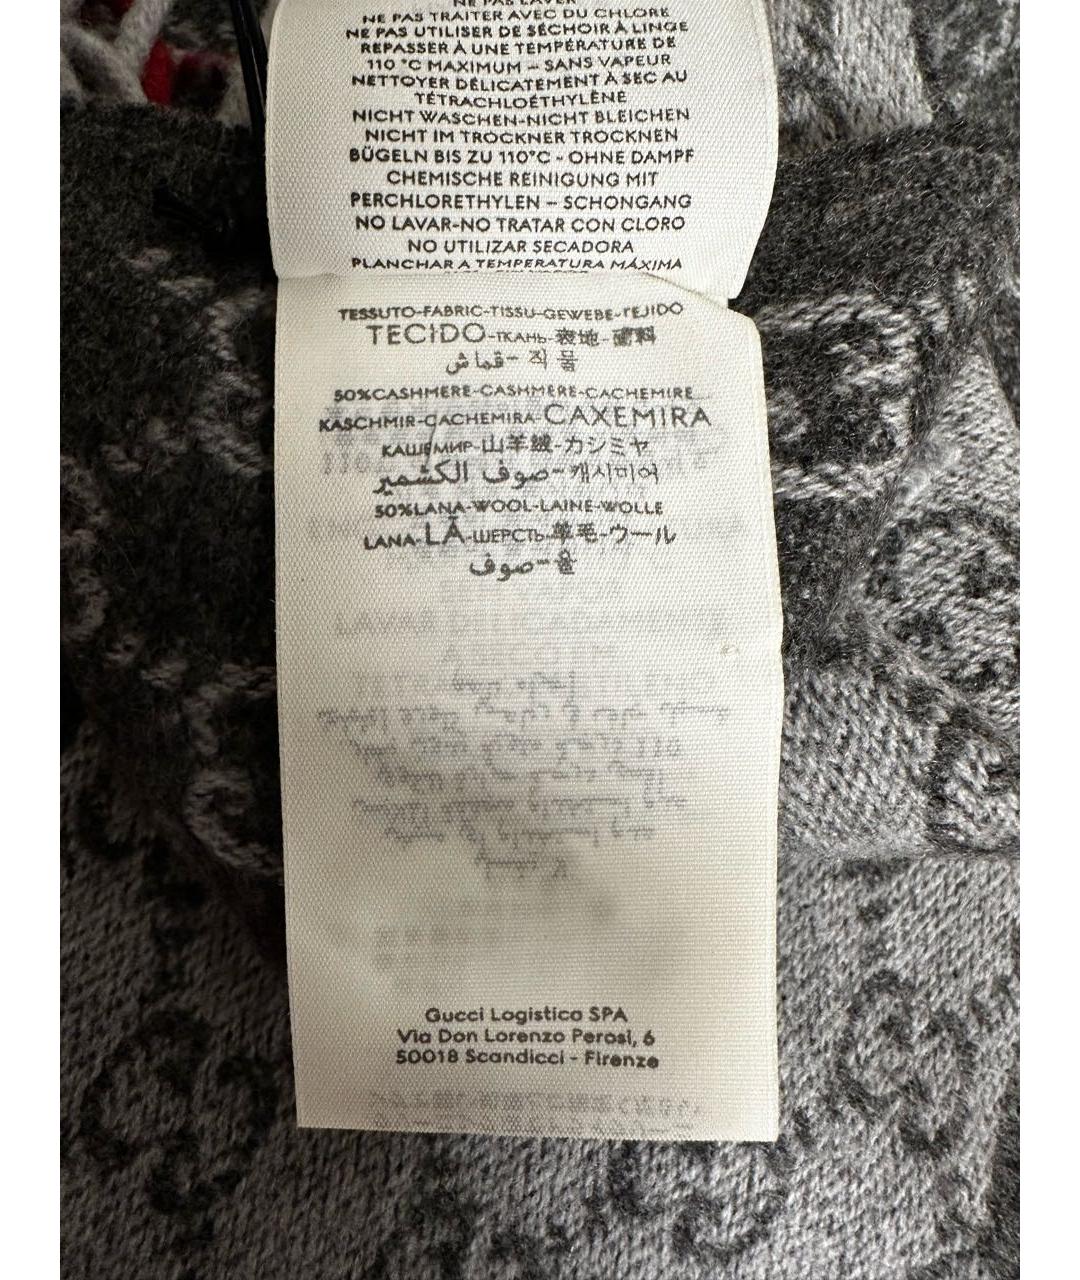 NE PAS LAVER
NE PAS TRAITER AVEC DU CHLORE
NE PAS UTILISER DE SÉCHOIR À LINGE
REPASSER À UNE TEMPÉRATURE DE
110 °C MAXIMUM – SANS VAPEUR
NETTOYER DÉLICATEMENT À SEC AU
TÉTRACHLOÉTHYLÈNE
NICHT WASCHEN-NICHT BLEICHEN
NICHT IM TROCKNER TROCKNEN
BÜGELN BIS ZU 110°C - OHNE DAMPF
CHEMISCHE REINIGUNG MIT
PERCHLORETHYLEN – SCHONGANG
NO LAVAR-NO TRATAR CON CLORO
NO UTILIZAR SECADORA
PLANCHAR A TEMPERATURA MÁXIMA
TESSUTO-FABRIC-TISSU-GEWEBE-TEJIDO
TECIDO-ТКАНЬ-表地-面料
직물-قماش
50%CASHMERE-CASHMERE-CACHEMIRE
KASCHMIR-CACHEMIRA CAXEMIRA
КАШЕМИР-山羊绒-カシミヤ
캐시미어-صوف الكشمير
50%LANA-WOOL-LAINE-WOLLE
LANA-LÃ-ШЕРСТЬ-羊毛-ウール
울-صوف
Gucci Logistica SPA
Via Don Lorenzo Perosi, 6
50018 Scandicci - Firenze